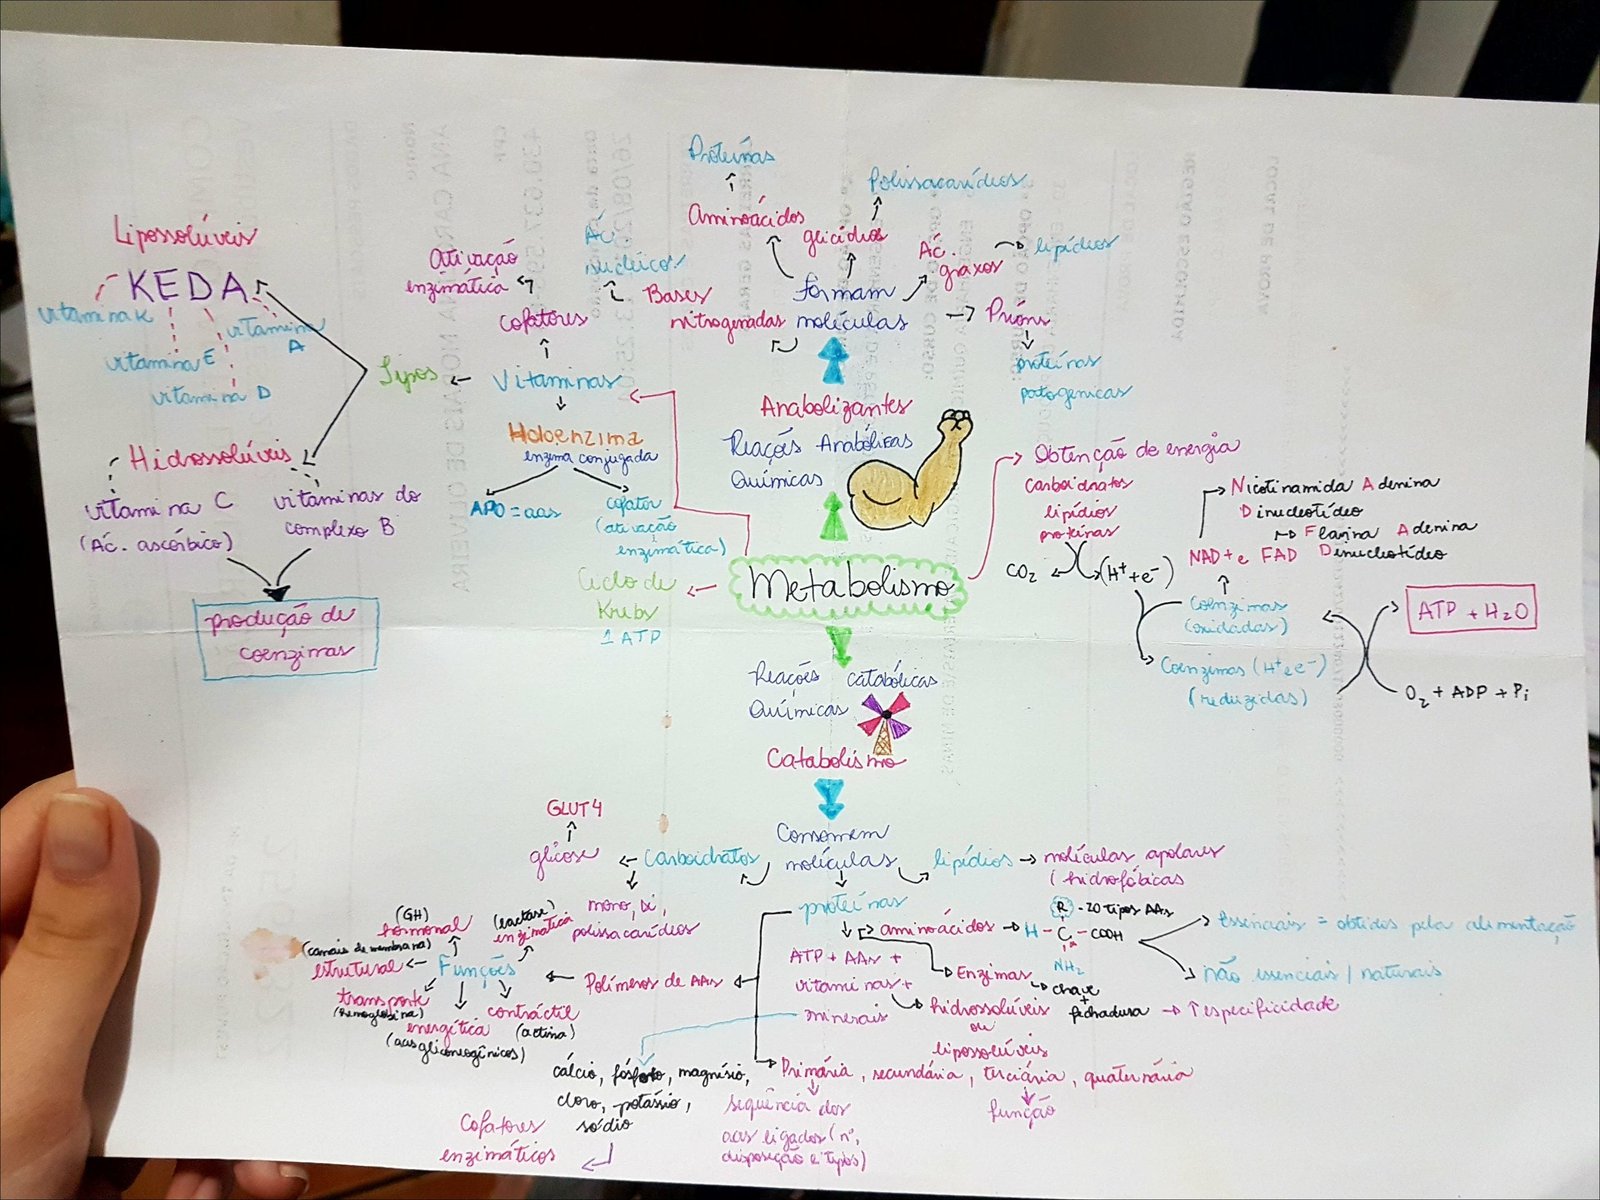 Proteínas
Aminoácidos
Polissacarídeos
glicídios
Ác.
graxos
lipídeos
Formam
moléculas
Príons
proteínas
patogenicas
Ác.
nucléicos
Bases
nitrogenadas
Ativação
enzimática
cofatores
Vitaminas
Tipos
Lipossolúveis
KEDA
vitamina K
vitamina E
vitamina D
vitamina
A
Hidrossolúveis
vitamina C
(Ác. ascórbico)
vitaminas do
complexo B
produção de
coenzimas
Holoenzima
enzima conjugada
APO = aas
cofator
(ativação
enzimática)
Anabolizantes
Reações Anabólicas
Químicas
Metabolismo
Ciclo de
Krebs
1 ATP
Obtenção de energia
Carboidratos
lipídios
proteínas
CO₂
(H⁺ + e⁻)
Nicotinamida Adenina
Dinucleotídeo
Flavina Adenina
Dinucleotídeo
NAD+ e FAD
Coenzimas
(oxidadas)
Coenzimas (H⁺ e e⁻)
(reduzidas)
ATP + H₂O
O₂ + ADP + Pi
Reações catabólicas
Químicas
Catabolismo
Consomem
moléculas
Carboidratos
glicose
GLUT4
mono, di,
polissacarídeos
lipídios
moléculas apolares
(hidrofóbicas
proteínas
aminoácidos
H - C - COOH
R - 20 tipos AAs
NH₂
Essenciais = obtidos pela alimentação
não essenciais / naturais
Enzimas
chave
+
fechadura
↑ especificidade
ATP + AAs +
vitaminas +
minerais
hidrossolúveis
ou
lipossolúveis
Polímeros de AAs
Funções
(GH)
hormonal
(lactase)
enzimática
(canais de membrana)
estrutural
transporte
(hemoglobina)
energética
(aas gliconeogênicos)
contráctil
(actina)
cálcio, fósforo, magnésio,
cloro, potássio,
sódio
Cofatores
enzimáticos
Primária, secundária, terciária, quaternária
sequência dos
aas ligados (nº,
disposição e tipos)
função